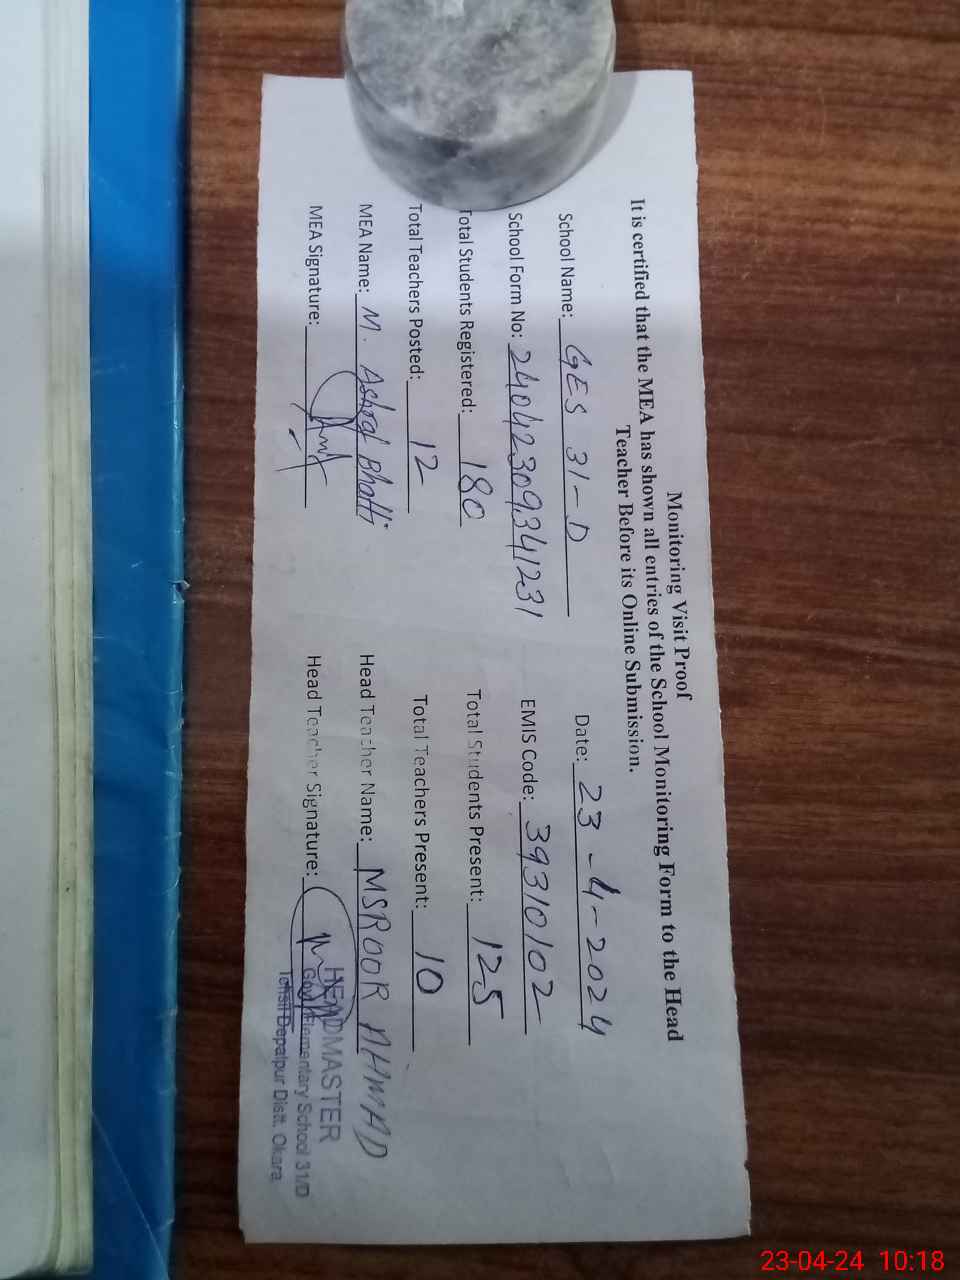 Monitoring Visit Proof
It is certified that the MEA has shown all entries of the School Monitoring Form to the Head
Teacher Before its Online Submission.
School Name: GES 31-D Date: 23-4-2024
School Form No: 24042309341231 EMIS Code: 39310102
Total Students Registered: 180 Total Students Present: 125
Total Teachers Posted: 12 Total Teachers Present: 10
MEA Name: M. Ashraf Bhatti Head Teacher Name: MSROOR AHMAD
MEA Signature: Head Teacher Signature:
HEADMASTER
Govt. Elementary School 31/D
Tehsil Depalpur Distt. Okara
23-04-24 10:18